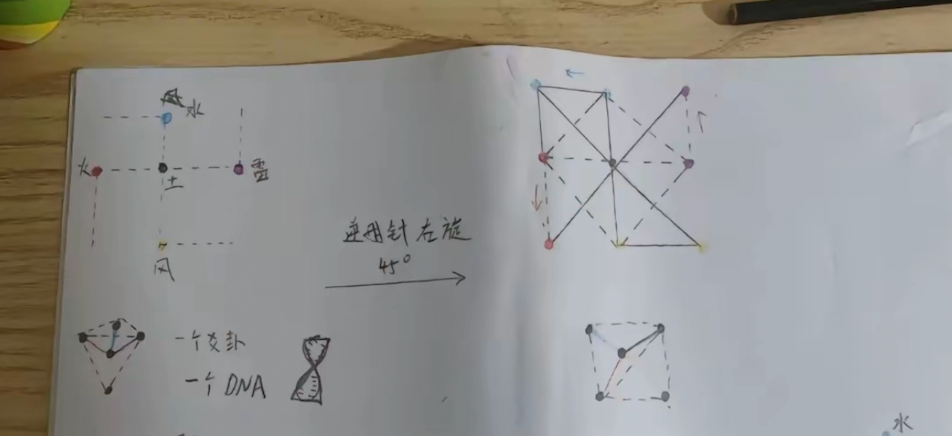 水
火
土
雷
风
逆时针左旋
45°
一个爻卦
一个DNA
水